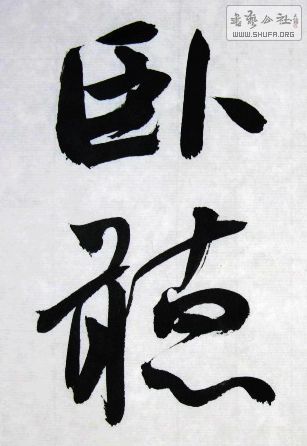 书艺公社
WWW.SHUFA.ORG
卧
聴